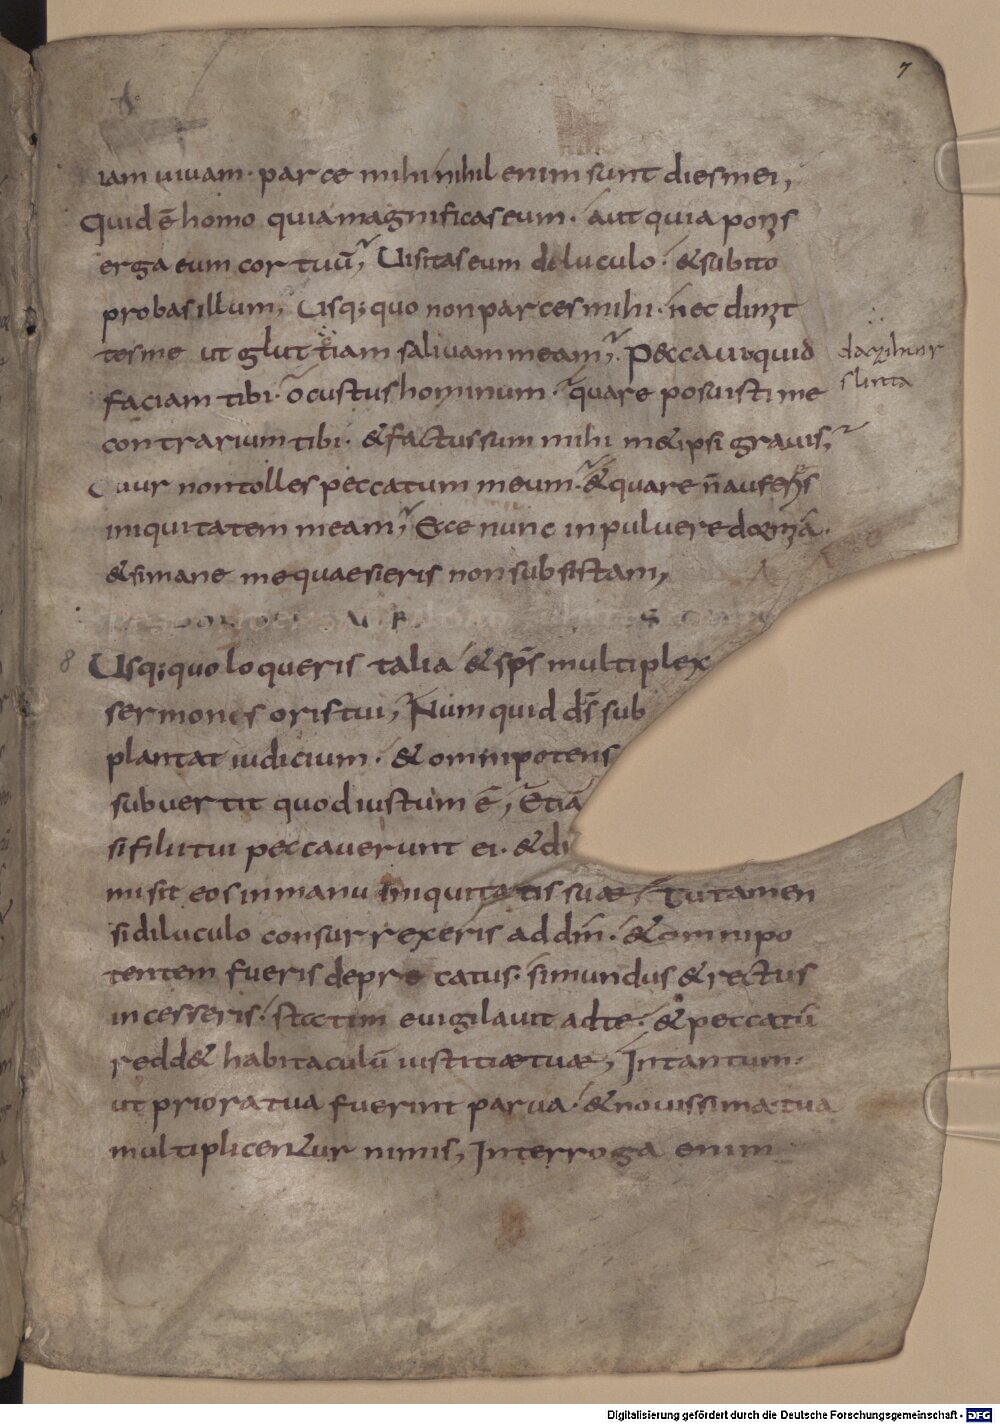 7
iam uiuam. parce mihi nihil enim sunt dies mei,
Quid ē homo quia magnificas eum. aut quia ponis
erga eum cor tuū, Uisitas eum diluculo. & subito
probas illum, Usq; quo non parces mihi. nec dimit
tes me ut gluttiam saliuam meam, Peccaui quid
faciam tibi. o custus hominum. quare posuisti me
contrarium tibi. & factus sum mihi m&ipsi grauis,
Cuur non tolles peccatum meum. & quare n̄ aufers
iniquitatem meam, Ecce nunc in puluere dormiā.
& si mane me quaesieris non subsistam,
8 Usq; quo loqueris talia & sp̄s multiplex
sermones oris tui, Numquid d̄s sub
plantat iudicium. & omnipotens
subuertit quod iustum ē, Etiā
si filii tui peccauerunt ei. & di
misit eos in manu iniquitatis suae, Tu tamen
si diluculo consurrexeris ad dm̄. & omnipo
tentem fueris deprecatus. si mundus & rectus
incesseris. statim euigilauit ad te. & peccatū
redd& habitaculū iustitiae tuae, Intantum.
ut priora tua fuerint parua. & nouissima tua
multiplicentur nimis, Interroga enim
Digitalisierung gefördert durch die Deutsche Forschungsgemeinschaft - DFG